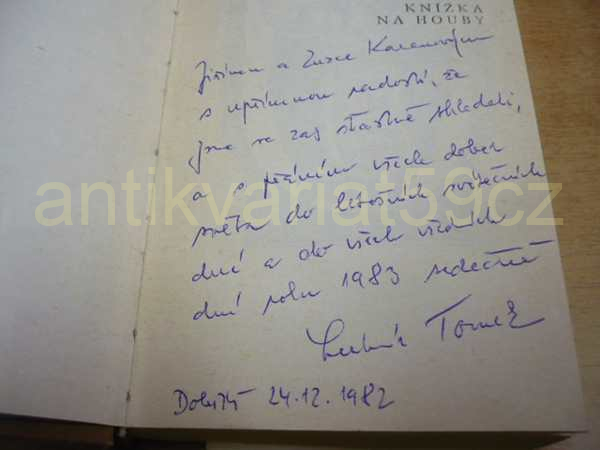 KNÍŽKA
NA HOUBY
Jiřímu a Zuzce Karenovým
s upřímnou radostí, že
jsme se zas šťastně shledali,
a s přáním všech dober
světa do letošních svátečních
dnů a do všech všedních
dnů roku 1983 srdečně
Luboš Tomek
24.12.1982
antikvariat59cz